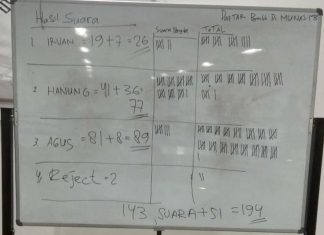 Hasil Suara
Suara Pending TOTAL
1. IRWAN = 19 + 7 = 26
2. HANUNG = 41 + 36 =
77
3. AGUS = 81 + 8 = 89
4. Reject = 2
143 SUARA + 51 = 194